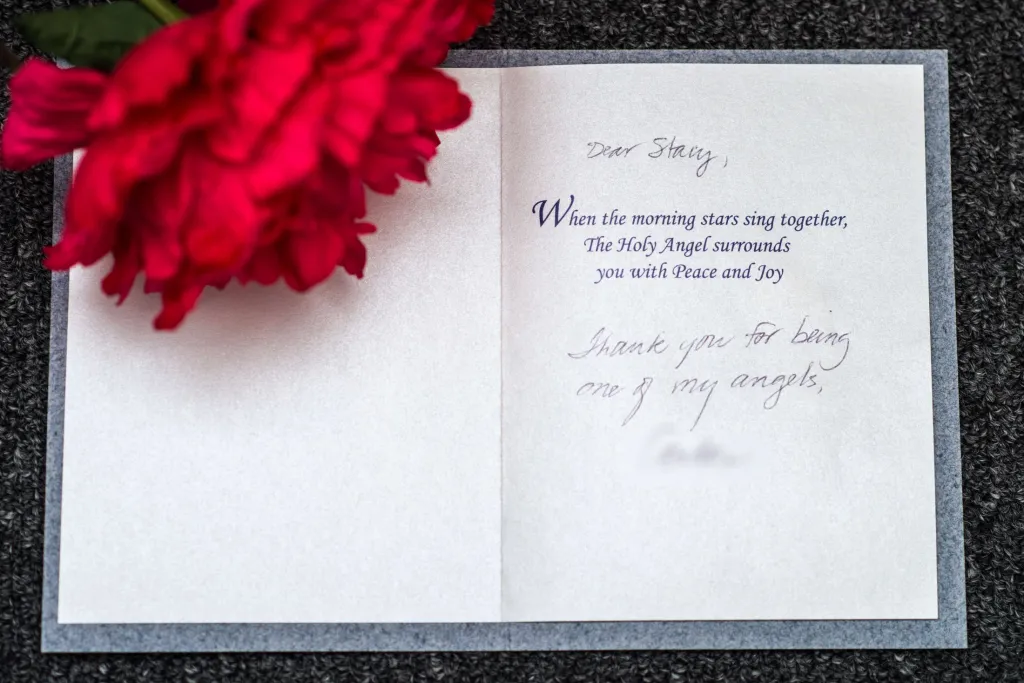 Dear Stacy,
When the morning stars sing together,
The Holy Angel surrounds
you with Peace and Joy
Thank you for being
one of my angels,